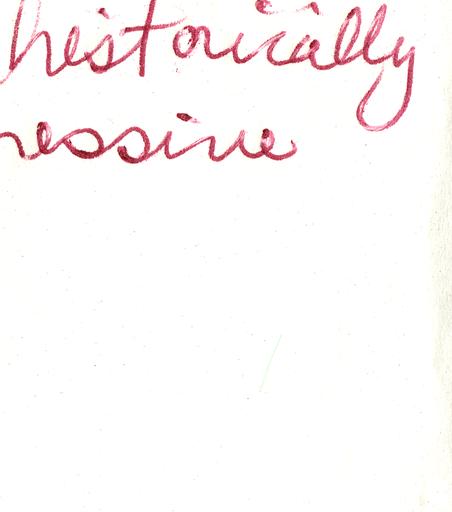 historically
ressive